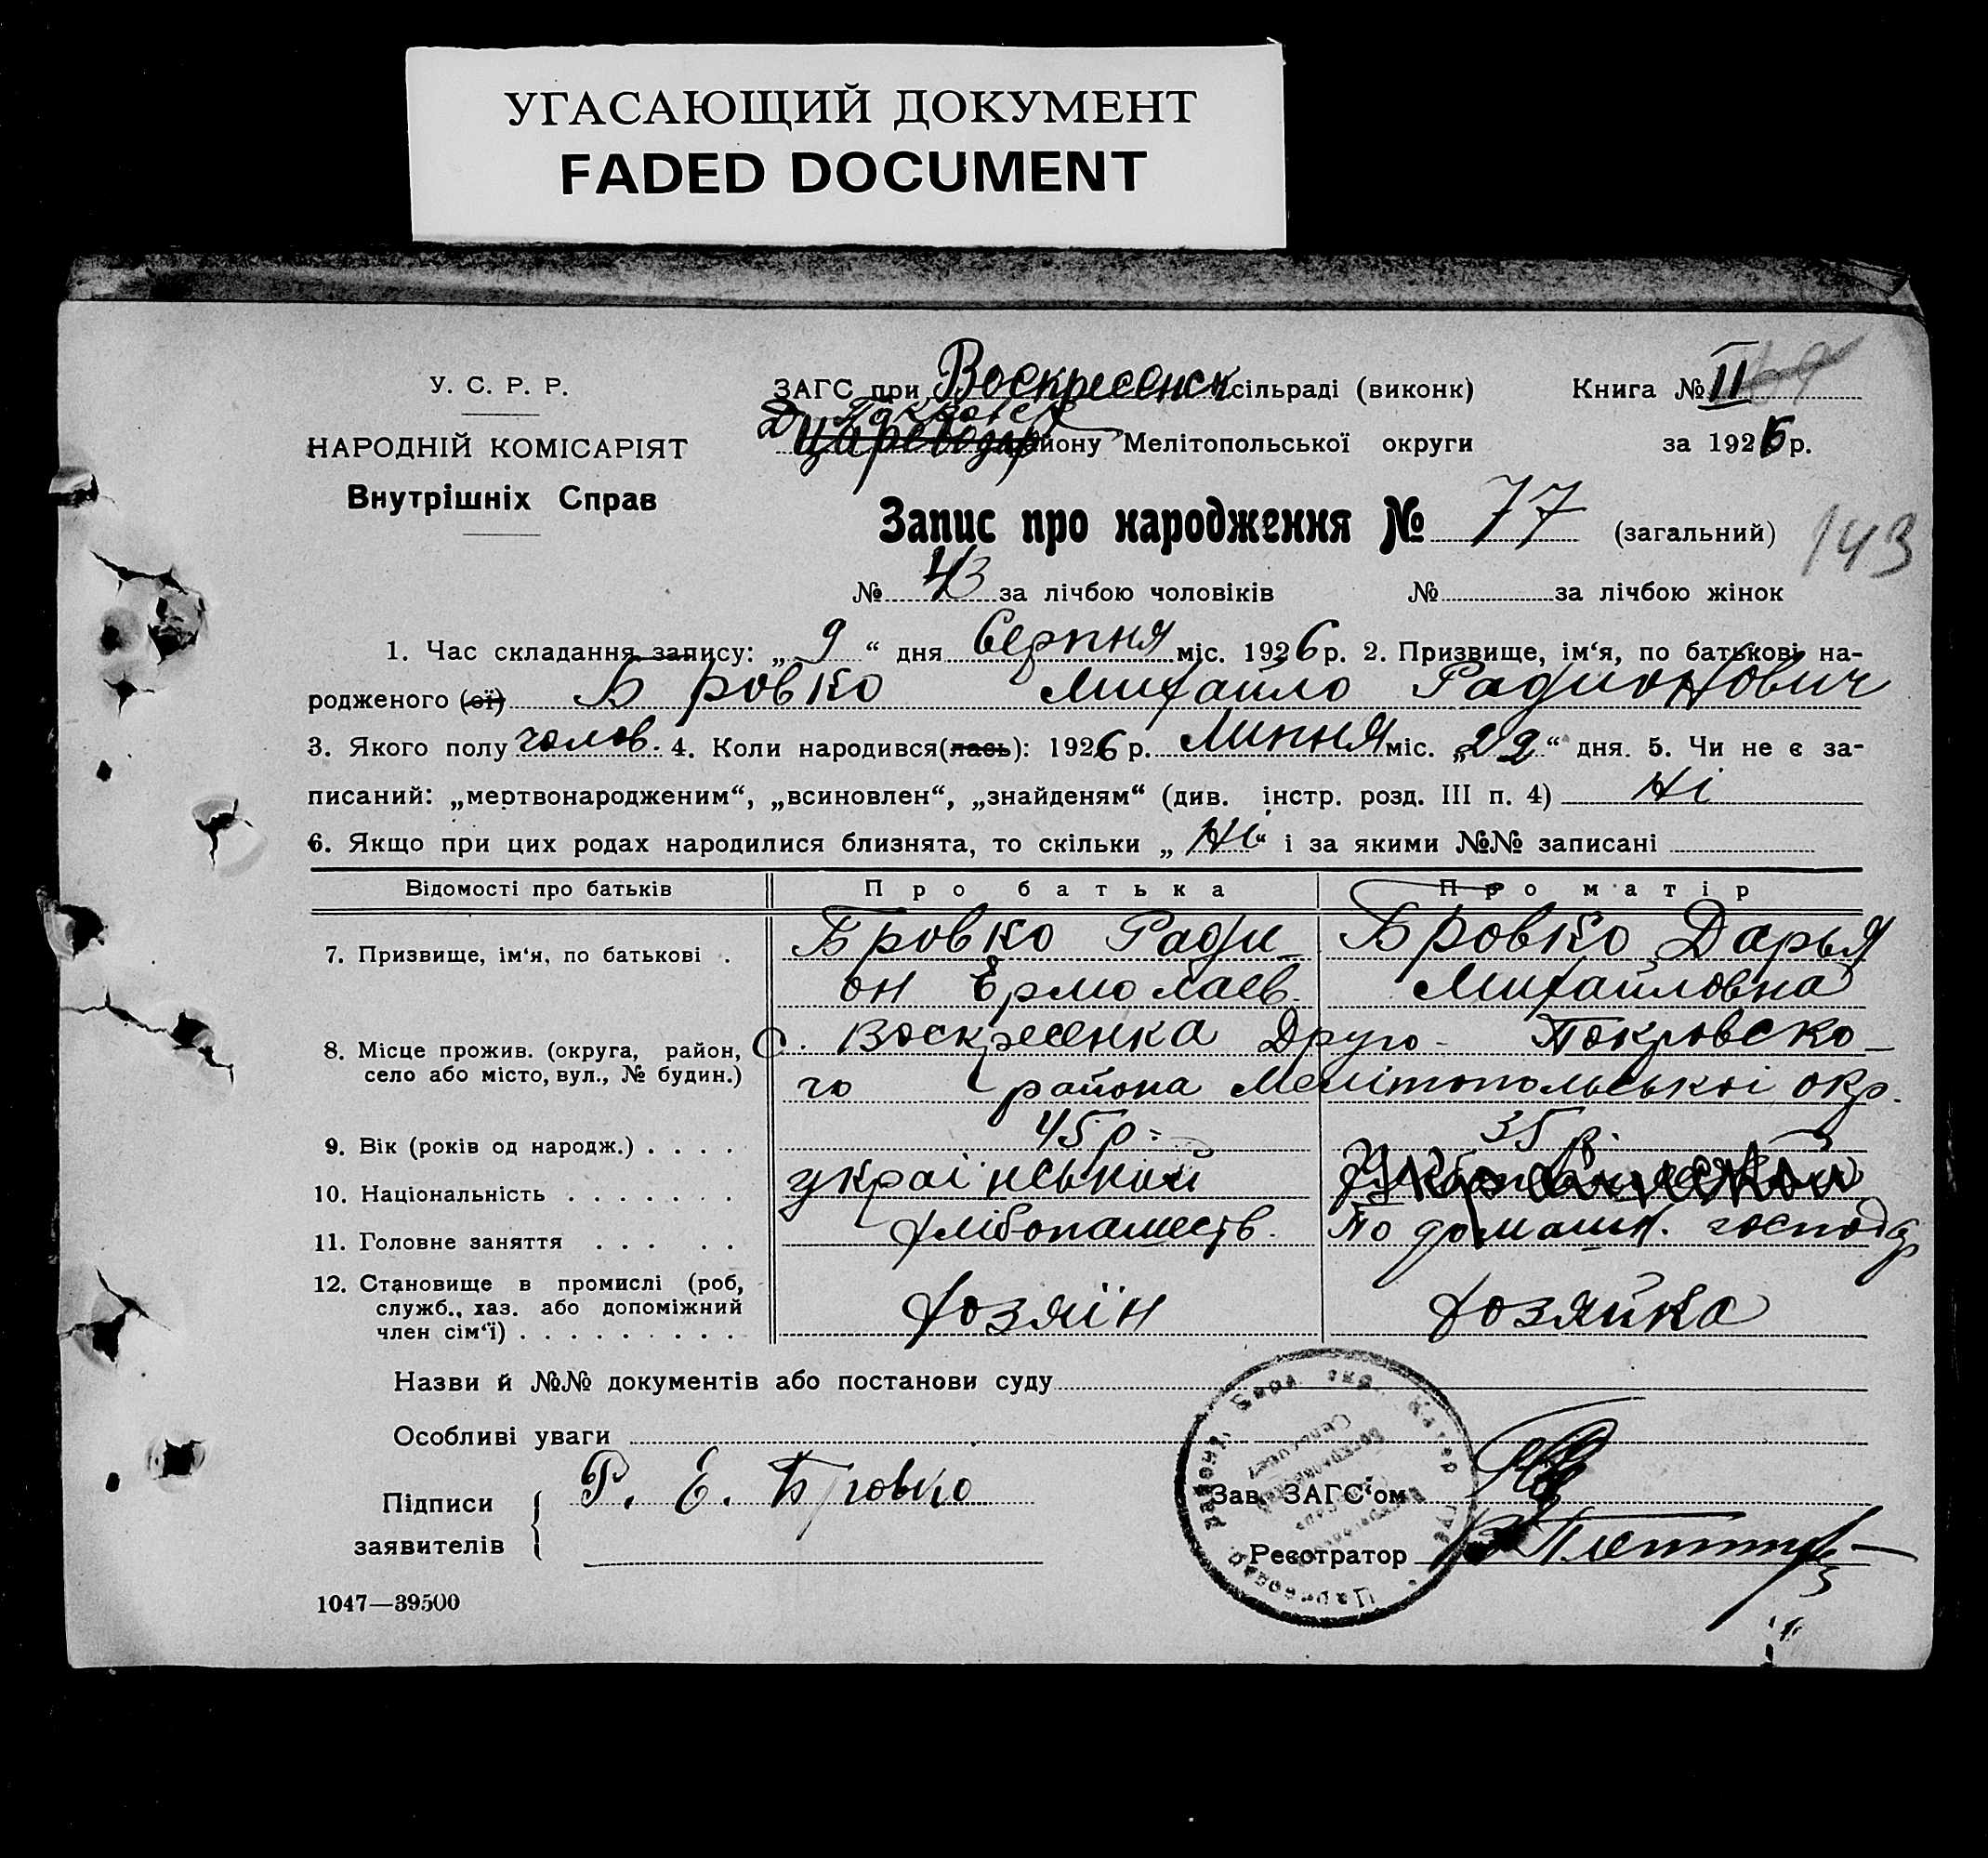 УГАСАЮЩИЙ ДОКУМЕНТ
FADED DOCUMENT
У. С. Р. Р.
НАРОДНІЙ КОМІСАРІЯТ
Внутрішніх Справ
ЗАГС при Воскресенск сільраді (виконк)
Д Покровск
Цареводар району Мелітопольської округи
Книга № II
за 1926 р.
Запис про народження № 77 (загальний)
143
№ 43 за лічбою чоловіків № за лічбою жінок
1. Час складання запису: „ 9 “ дня Серпня міс. 1926 р. 2. Призвище, ім‘я, по батькові на-
родженого (ої) Бровко Михайло Радионович
3. Якого полу чолов. 4. Коли народився(лась): 1926 р. Липня міс. „22“ дня. 5. Чи не є за-
писаний: „мертвонародженим“, „всиновлен“, „знайденям“ (див. інстр. розд. III п. 4) Ні
6. Якщо при цих родах народилися близнята, то скільки „ Ні “ і за якими №№ записані
Відомості про батьків Про батька Про матір
7. Призвище, ім‘я, по батькові . Бровко Ради- Бровко Дарья
он Ермолаев. Михайловна
8. Місце прожив. (округа, район, село або місто, вул., № будин.) с. Воскресенка Друго- Покровско-
го района Мелітопольськоі окр.
9. Вік (років од народж.) . . . . 45 р. 35 р.
10. Національність . . . . . . . украінський
11. Головне заняття . . . . . хлібопашеств. По домашн. господар
12. Становище в промислі (роб, служб., хаз. або допоміжний член сім‘ї) . . . . . . . . . хозяїн хозяйка
Назви й №№ документів або постанови суду
Особливі уваги
Підписи
заявителів
Р. Е. Бровко
Зав. ЗАГС‘ом
Реєстратор
1047—39500